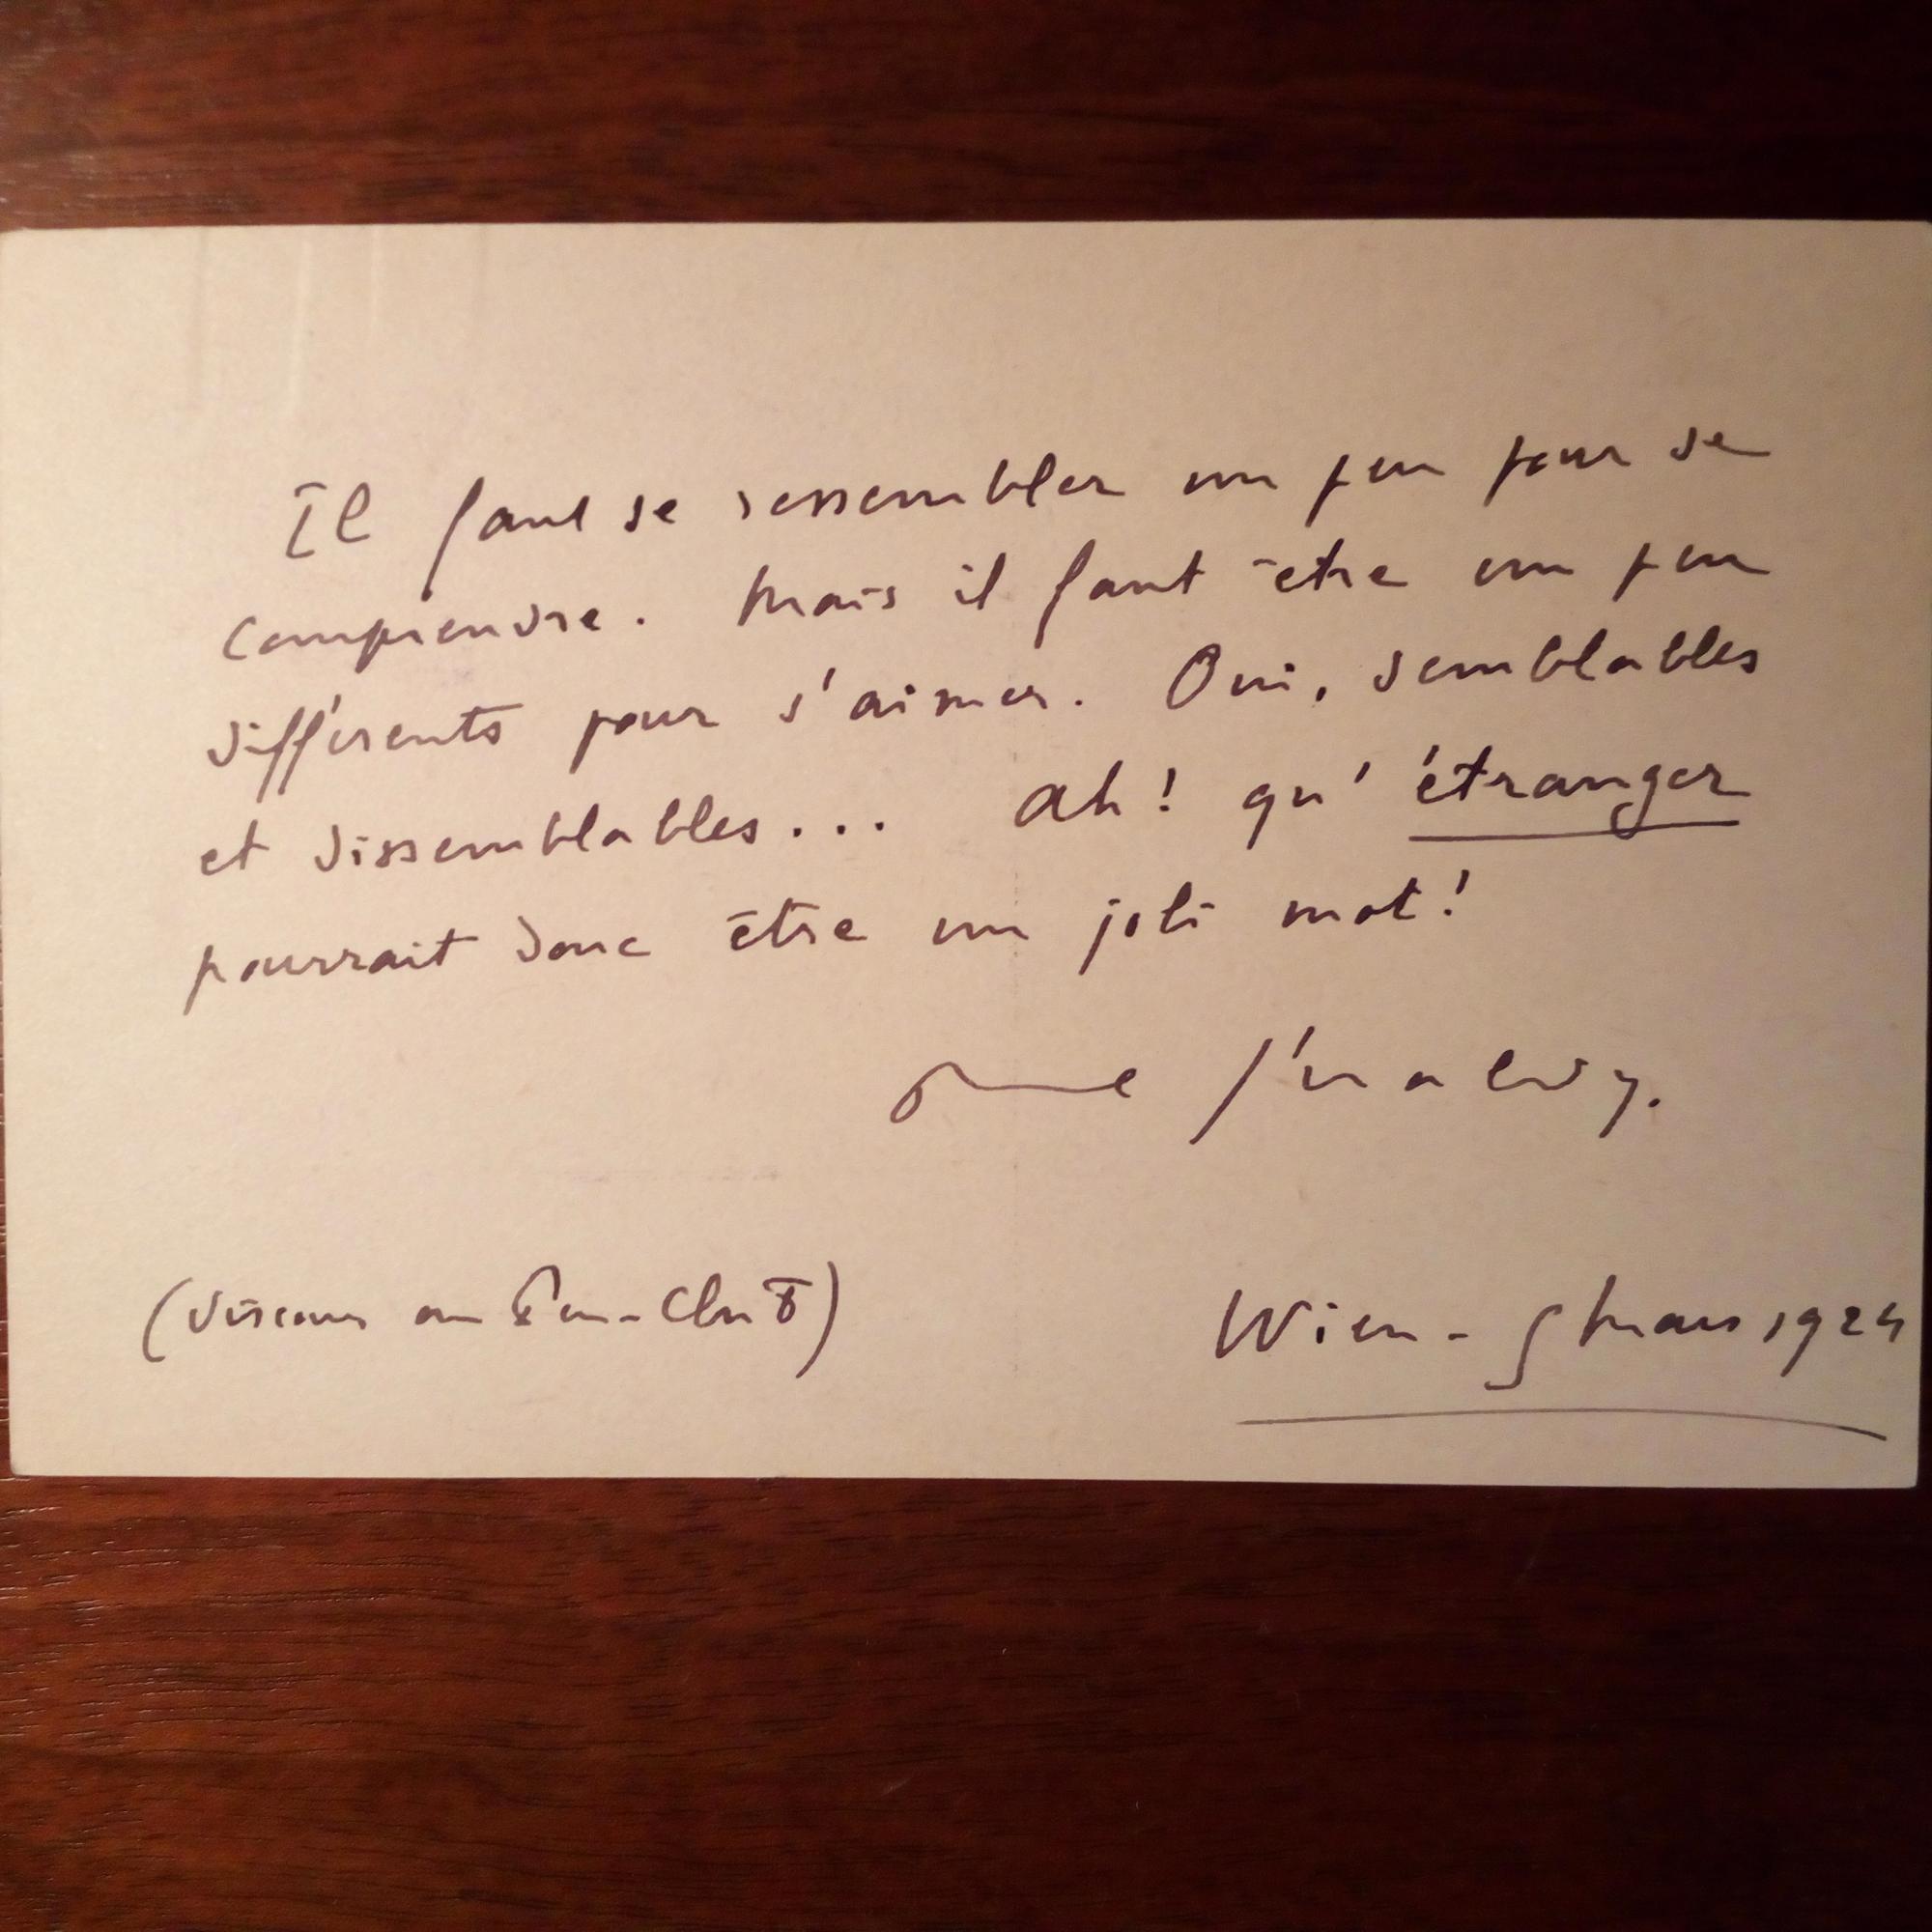 Il faut se ressembler un peu pour se
comprendre. Mais il faut être un peu
différents pour s'aimer. Oui, semblables
et dissemblables... Ah! qu'étranger
pourrait donc être un joli mot!
Paul Géraldy.
(Discours au Pen-Club)
Wien - mars 1924